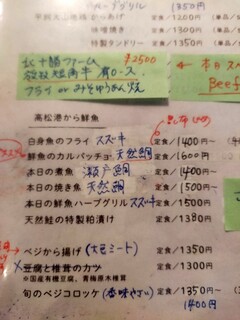 ハーブグリル 1350円
平飼大山地鶏からあげ 定食/1200円 (単品/
味噌焼き 定食/1300円 (単品
特製タンドリー 定食/1350円 (単
北十勝ファーム ¥2500
放牧短角牛 肩ロース
フライ or みそゆうあん焼
本日ス
Beef
高松港から鮮魚
白身魚のフライ スズキ 定食/1400円~
鮮魚のカルパッチョ 天然鯛 定食/1600円
本日の煮魚 瀬戸鯛 定食/1400円~
本日の焼き魚 天然鯛 定食/1500円
本日の鮮魚ハーブグリル スズキ 定食/1500円
天然鮭の特製粕漬け 定食/1380円
ベジから揚げ (大豆ミート) 定食/1350円
豆腐と椎茸のカツ 定食/1300円
※国産有機豆腐、青梅原木椎茸
旬のベジコロッケ (香味やさい) 定食/1350円~
1400円